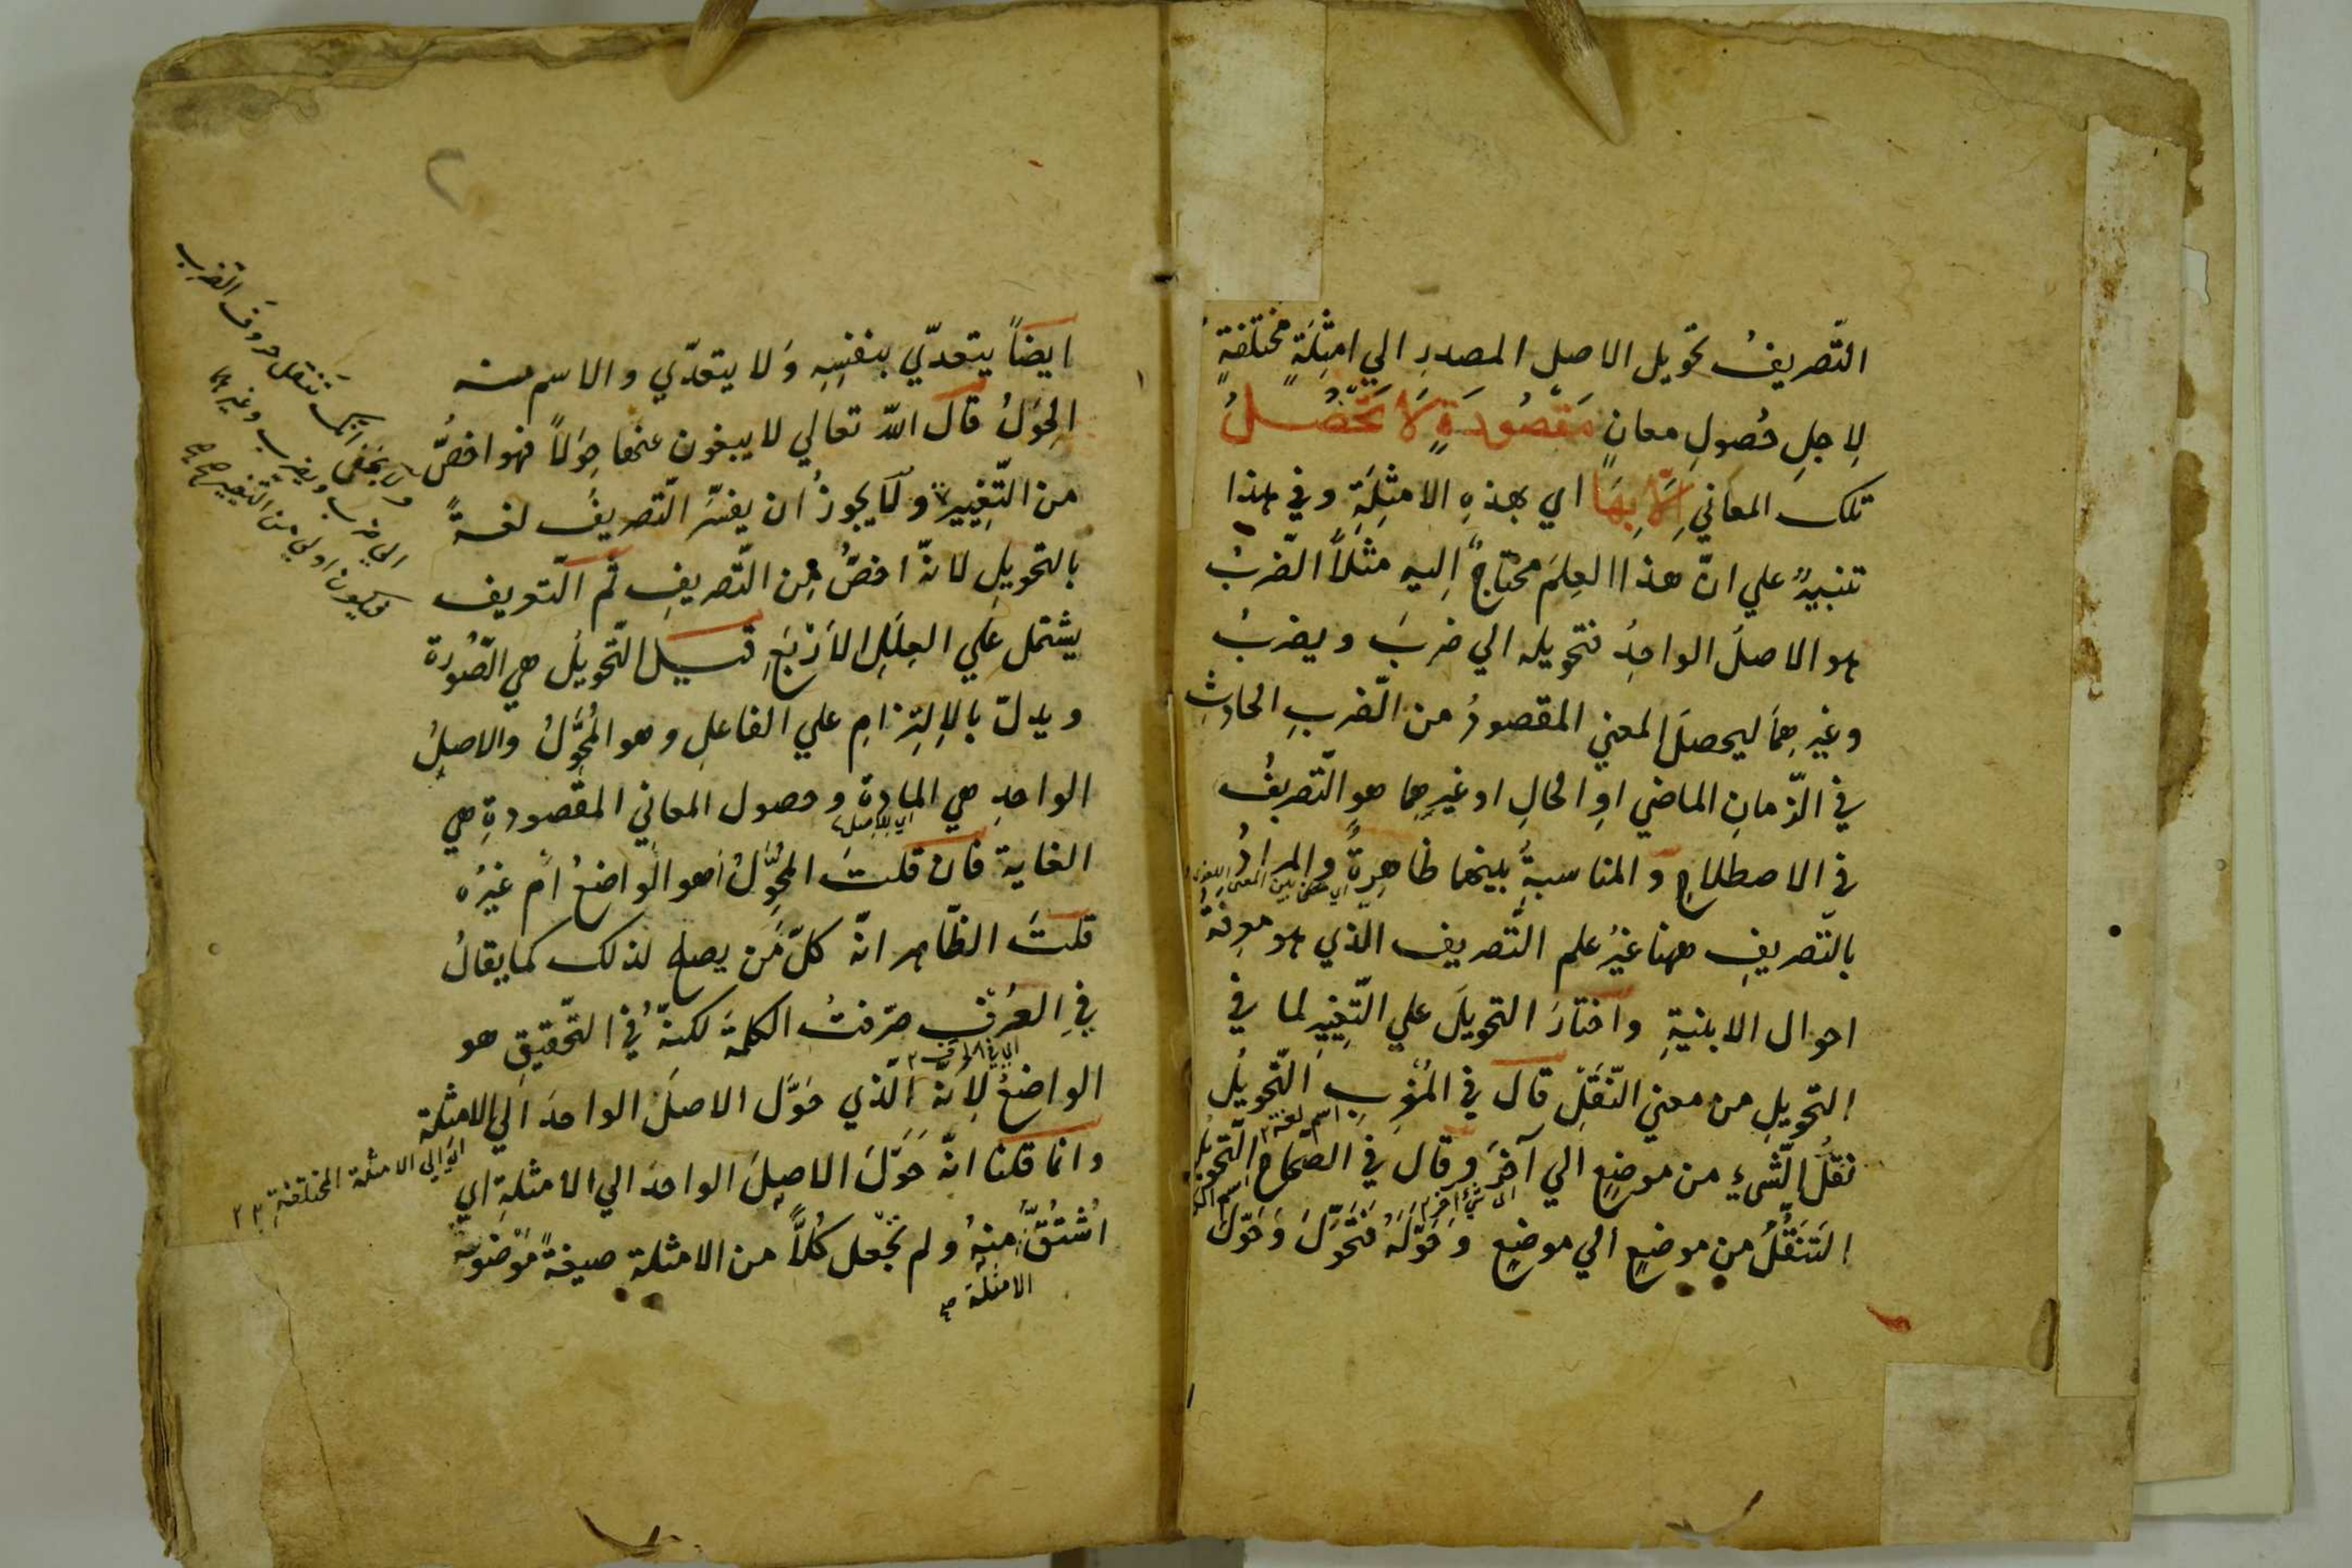 التّصريفُ تحويل الاصل المصدرِ الي امثِلَةٍ مختلفةٍ
لاِجلِ حُصولِ معانٍ مَقصُودَةٍ لَا تَحْصُلُ
تلكَ المعاني اِلَّا بِهَا اي بهذهِ الامثِلَةِ وفي هذا
تنبيهٌ علي انّ هذا العِلمَ محتاجٌ اِليهِ مثلاً الضّربُ
هو الاصلُ الواحِدُ فتحويله الي ضربَ ويضربُ
وغيرِهِمَا ليحصلَ المعني المقصودُ من الضّربِ الحادِثِ
في الزّمانِ الماضي اوِ الحالِ او غيرِهِما هو التّصريفُ
في الاصطلاحِ والمناسبةُ بينهما ظاهِرةٌ والمرادُ
بالتّصريفِ ههنا غيرُ علم التّصريف الذي هو معرفةُ
احوال الابنيةِ واختارَ التحويلَ علي التّغييرِ لما في
التحويلِ من معني النّقلِ قال في المُغرِبِ التّحويلُ
اسم لغة
نقلُ الشّيءِ من موضعٍ الي آخرَ وقال في الصّحاحِ التّحويلُ
الي شيء آخر
التَنَقُّلُ من موضعٍ الي موضعٍ وَحَوَّلَهُ فَتَحَوَّلَ وَحَوَّلَ
٢
ايضاً يتعدّي بنفسِهِ وَلا يتعدّي والاسم منه
الحِوَلُ قال اللّه تعالي لا يبغون عنها حِوَلاً فهو اخصُّ
من التّغييرِ ولَا يجوزُ ان يفسّرَ التّصريفُ لغةً
بالتحويلِ لانّهُ اخصُّ مِن التّصريفِ ثم التّعريف
يشتمل علَي العِلَلِ الاَرْبَعِ قيل التّحويلُ هي الصّورة
ويدلّ بالاِلتِزامِ علي الفاعلِ وهو المُحَوِّلُ والاصلُ
الواحدِ هي المادة وحصول المعاني المقصودةِ هي
اي للاصل
الغاية فان قلتَ المُحَوِّلُ أهو الواضعُ ام غيرُه
قلتَ الظّاهر انّه كلّ مَن يصلح لذلك كما يقالُ
في العُرْفِ صرّفتُ الكلمةَ لكنّه في التّحقيقِ هو
الواضعُ لاِنّه الّذي حَوَّل الاصلَ الواحدَ الي الامثلة
وانما قلنا انّه حَوَّلَ الاصلَ الواحدَ الي الامثلةِ اي
اُشْتُقَّ مِنهُ ولم يَجْعل كُلاًّ من الامثلة صيغةً مَوْضوعة
الامثلة
ولا يخفى انّك تنقل حروف الضرب
الي ضرب ويضرب وغيرهما
فيكون اولي من التغيير
اي الي الامثلة المختلفةِ